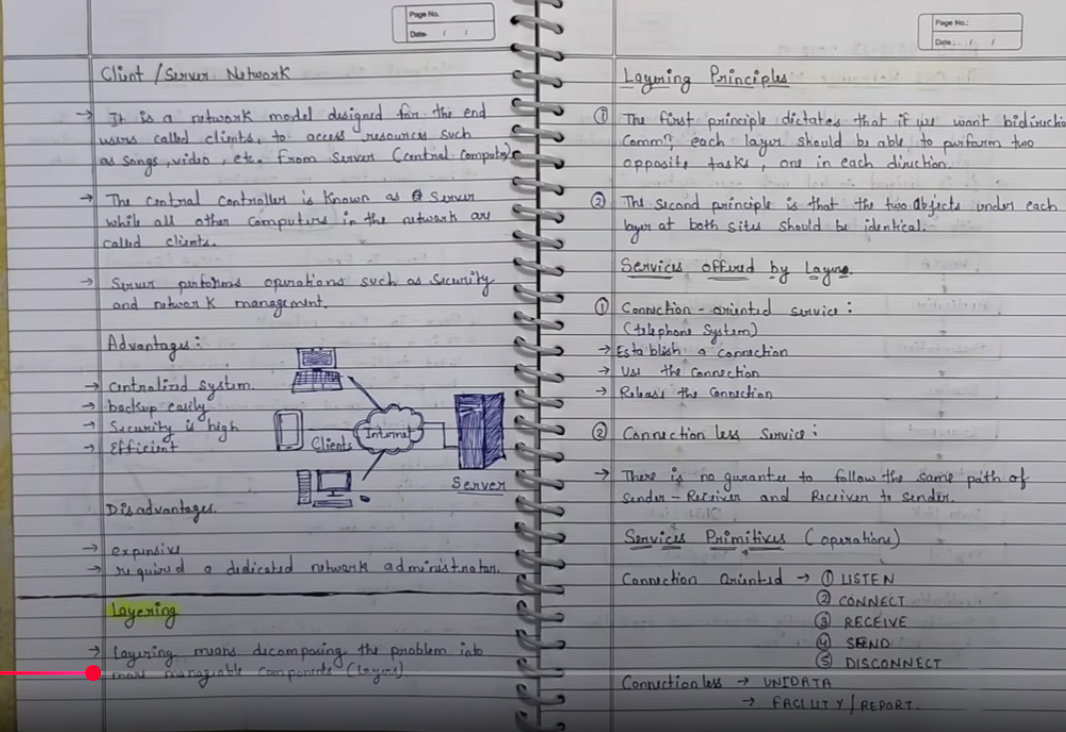 Page No.
Date / /
Clint / Server Network
→ It is a network model designed for the end
users called clients, to access resources such
as songs, video, etc. from server (central computer)
→ The central controller is known as Server
while all other computers in the network are
called clients.
→ Server performs operations such as security
and network management.
Advantages:
→ centralized system.
→ backup easily
→ Security is high
→ Efficient
Clients
Internet
Server
Disadvantages.
→ expensive
→ required a dedicated network administrator.
Layering
→ Layering means decomposing the problem into
more managable components (Layers)
Page No.:
Date.: / /
Layering Principles
① The first principle dictates that if we want bidirectio
Commⁿ. each layer should be able to perform two
opposite tasks, one in each direction.
② The second principle is that the two objects under each
layer at both sites should be identical.
Services offered by Layers.
① Connection - oriented service:
(telephone System)
→ Establish a connection
→ Use the connection
→ Release the connection
② Connection less Service:
→ There is no gurantee to follow the same path of
Sender - Receiver and Receiver to sender.
Services Primitives (operations)
Connection Oriented → ① LISTEN
② CONNECT
③ RECEIVE
④ SEND
⑤ DISCONNECT
Connectionless → UNIDATA
→ FACILITY / REPORT.